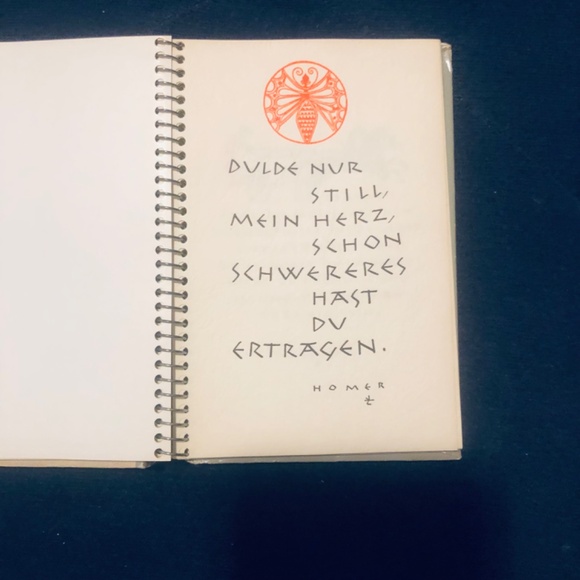 DULDE NUR
STILL,
MEIN HERZ,
SCHON
SCHWERERES
HAST
DU
ERTRAGEN.
HOMER